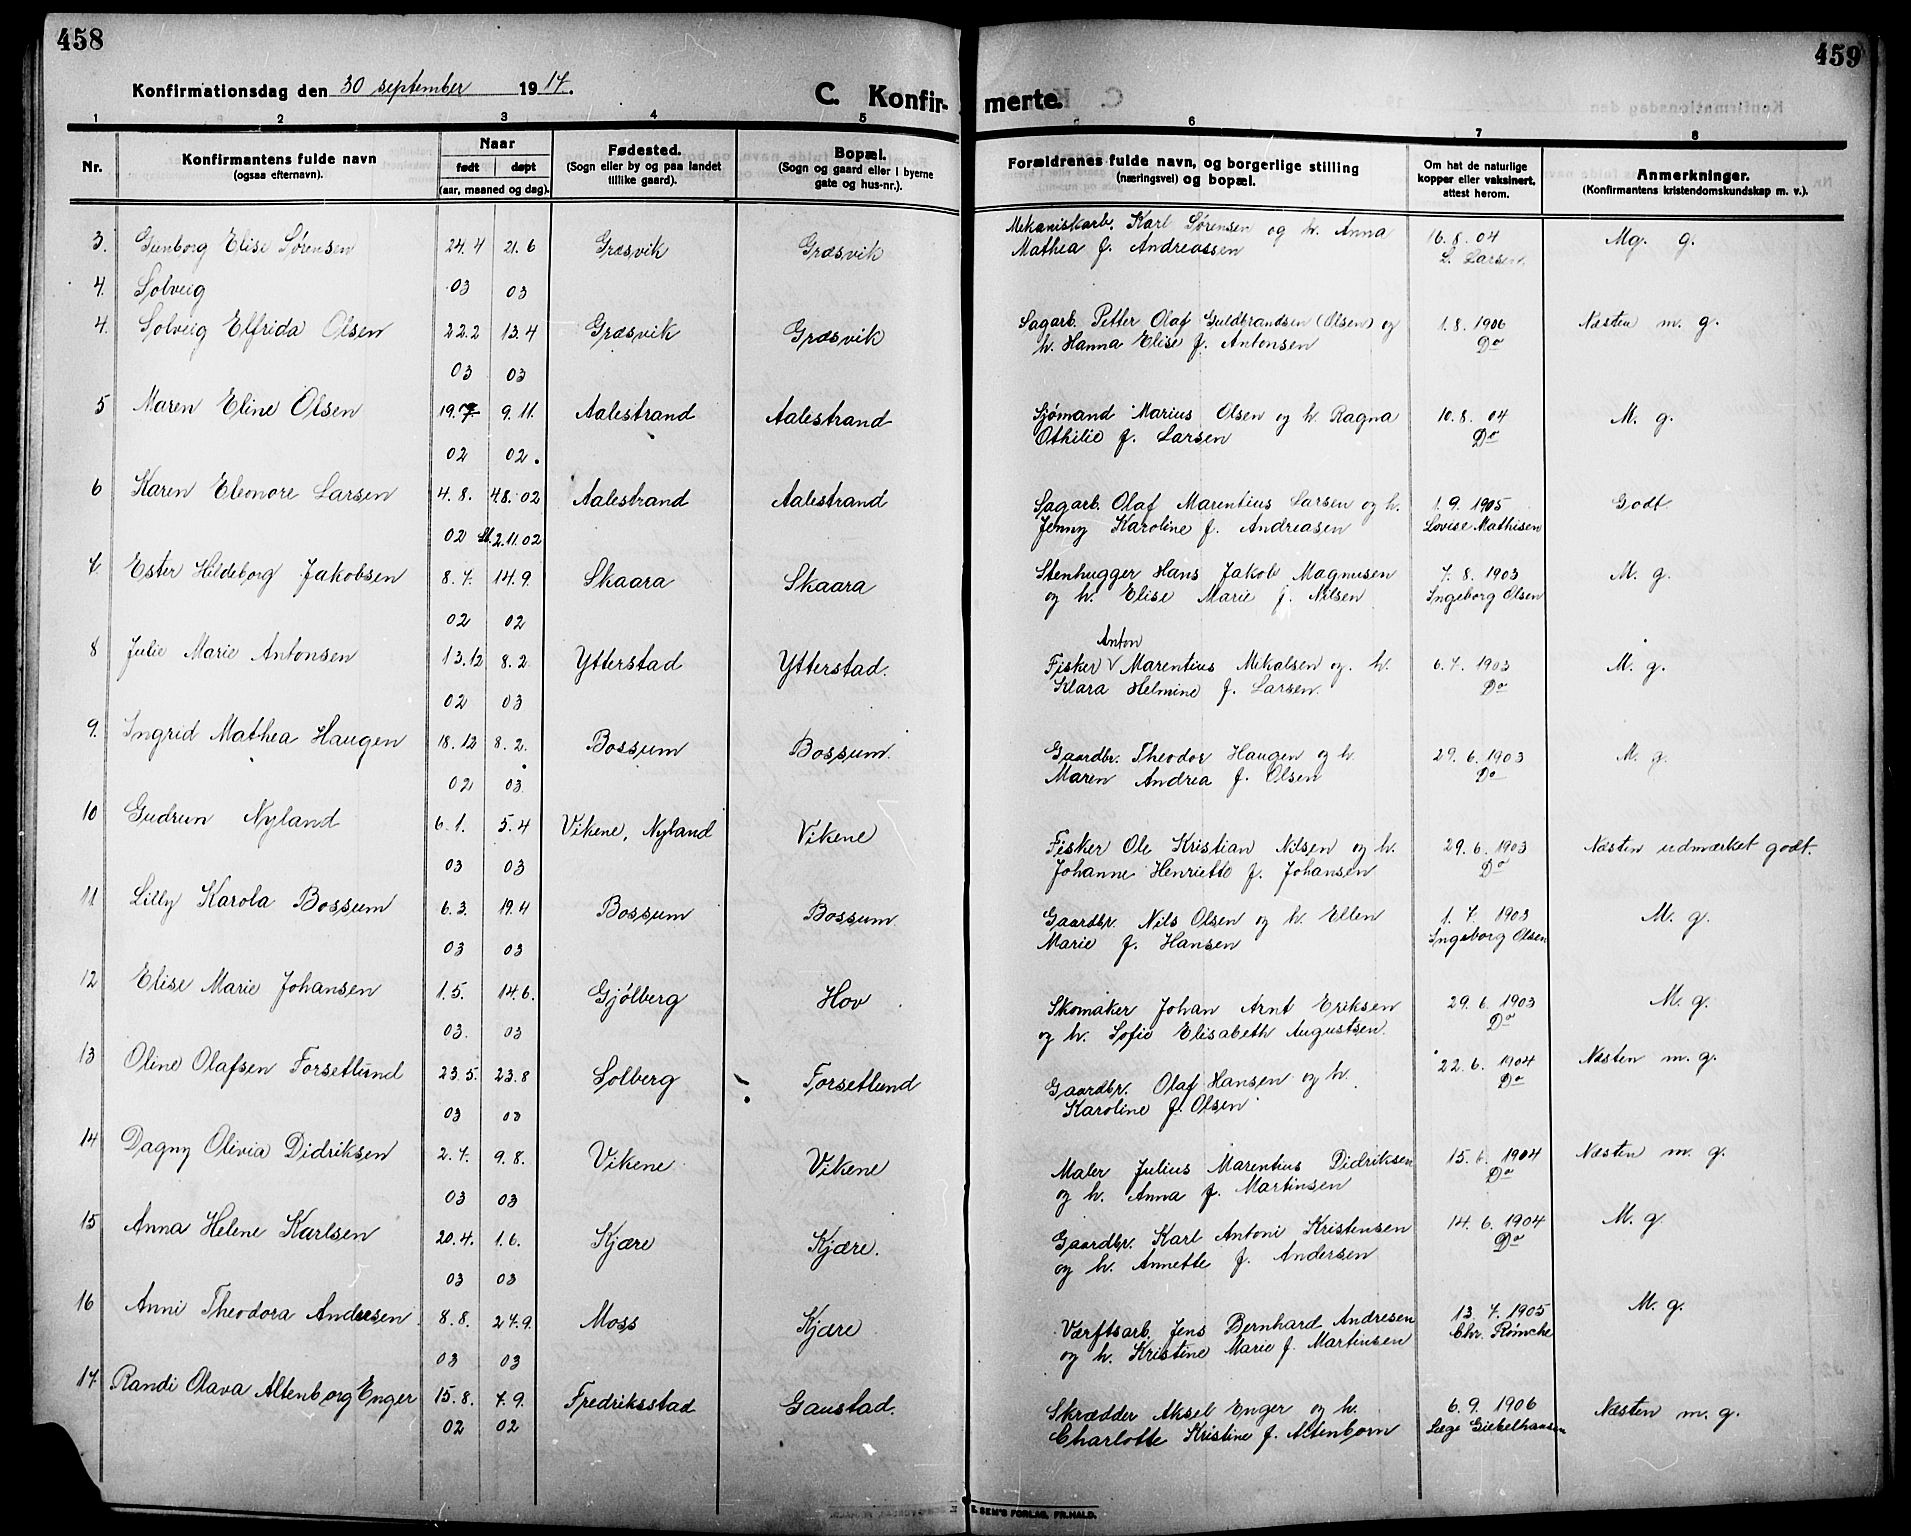 458
459
Konfirmationsdag den 30 september 1917.
C. Konfir- merte.
1 2 3 4 5 6 7 8
Nr.
Konfirmantens fulde navn
(ogsaa efternavn).
Naar
født døpt
(aar, maaned og dag).
Fødested.
(Sogn eller by og paa landet
tillike gaard).
Bopæl.
(Sogn og gaard eller i byerne
gate og hus-nr.).
Forældrenes fulde navn, og borgerlige stilling
(næringsvei) og bopæl.
Om hat de naturlige
kopper eller vaksinert,
attest herom.
Anmerkninger.
(Konfirmantens kristendomskundskap m. v.).
3. Gunborg Elise Sørensen 24.4 21.6 Græsvik Græsvik Mekaniskarb. Karl Sørensen og h. Anna 16.8.04 Mg. g.
03 03 Mathea f. Andreassen L. Larsen.
4. Solveig
4. Solveig Elfrida Olsen 22.2 13.4 Græsvik Græsvik Sagarb. Petter Olaf Guldbrandsen (Olsen) og 1.8.1906 Næsten m. g.
03 03 h. Hanna Elise f. Antonsen Do
5 Maren Eline Olsen 19.7 9.11. Aalestrand Aalestrand Sjømand Marius Olsen og h. Ragna 10.8.04 M. g.
02 02. Othilie f. Larsen Do
6 Karen Eleonore Larsen 4.8. 4.8.02 Aalestrand Aalestrand Sagarb. Olaf Marentius Larsen og h. 1.9.1905 Godt
02 2.11.02 Jenny Karoline f. Andreasen Lovise Mathisen
7. Ester Hildeborg Jakobsen 8.7. 14.9. Skaara Skaara Stenhugger Hans Jakob Magnusen 7.8.1903 M. g.
02 02 og h. Elise Marie f. Nilsen Ingeborg Olsen
Anton
8 Julie Marie Antonsen 13.12 8.2 Ytterstad Ytterstad. Fisker v Marentius Mikalsen og h. 6.7.1903 M. g.
02 03 Klara Helmine f. Larsen. Do
9. Ingrid Mathea Haugen 18.12 8.2. Bossum Bossum. Gaardbr. Theodor Haugen og h. 29.6.1903 M. g.
02 03 Maren Andrea f. Olsen Do
10 Gudrun Nyland 6.1. 5.4 Vikene, Nyland Vikene Fisker Ole Kristian Nilsen og h. 29.6.1903 Næsten udmærket godt.
03 03 Johanne Henriette f. Johansen Do
11 Lilly Karola Bossum 6.3. 19.4 Bossum Bossum Gaardbr. Nils Olsen og h. Ellen 1.7.1903 M. g.
03 03 Marie f. Hansen Ingeborg Olsen
12 Elise Marie Johansen 1.5. 14.6. Gjølberg Hov Skomaker Johan Arnt Eriksen 29.6.1903 M. g.
03. 03 og h. Sofie Elisabeth Augustsen. Do
13 Oline Olafsen Forsetlund 23.5. 23.8 Solberg Forsetlund Gaardbr. Olaf Hansen og h. 22.6.1904 Næsten m. g.
03 03 Karoline f. Olsen Do
14 Dagny Olivia Didriksen 2.7. 9.8. Vikene Vikene Maler Julius Marentius Didriksen 15.6.1904 Næsten m. g.
03 03 og h. Anna f. Martinsen Do
15 Anna Helene Karlsen 20.4. 1.6. Kjære Kjære. Gaardbr. Karl Antoni Kristensen 14.6.1904 M. g.
03 03 og h. Annette f. Andersen Do
16 Anni Theodora Andresen. 8.8. 27.9. Moss Kjære Værftsarb. Jens Bernhard Andresen 13.7.1905 M. g.
03 03 og h. Kristine Marie f. Martinsen Chr. Rømcke
17 Randi Olava Altenborg Enger 15.8. 7.9. Fredriksstad Gaustad. Skrædder Aksel Enger og h. 6.9.1906 Næsten m. g.
02 02 Charlotte Kristine f. Altenborn Læge